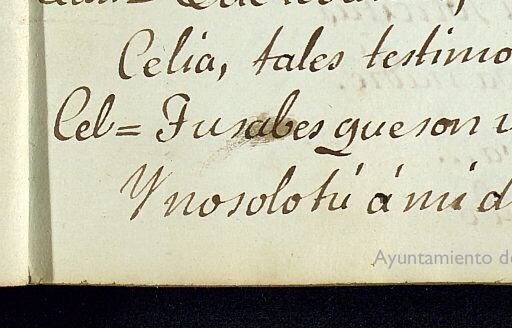 Celia, tales testimo
Cel= Tu sabes que son
Y no solo tú á mí d
Ayuntamiento de